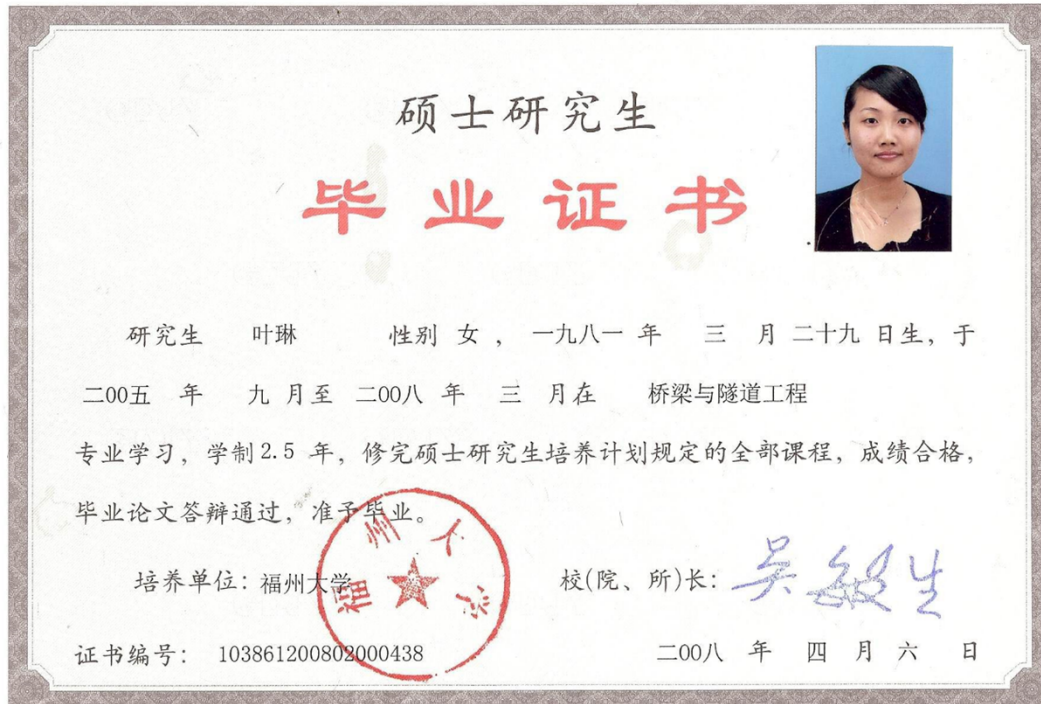 硕士研究生
毕业证书
研究生 叶琳 性别 女 ， 一九八一 年 三 月 二十九 日生，于
二00五 年 九 月至 二00八 年 三 月在 桥梁与隧道工程
专业学习，学制2.5 年，修完硕士研究生培养计划规定的全部课程，成绩合格，
毕业论文答辩通过，准予毕业。
福州大学
培养单位：福州大学
校(院、所)长：吴敏生
证书编号： 103861200802000438
二00八 年 四 月 六 日